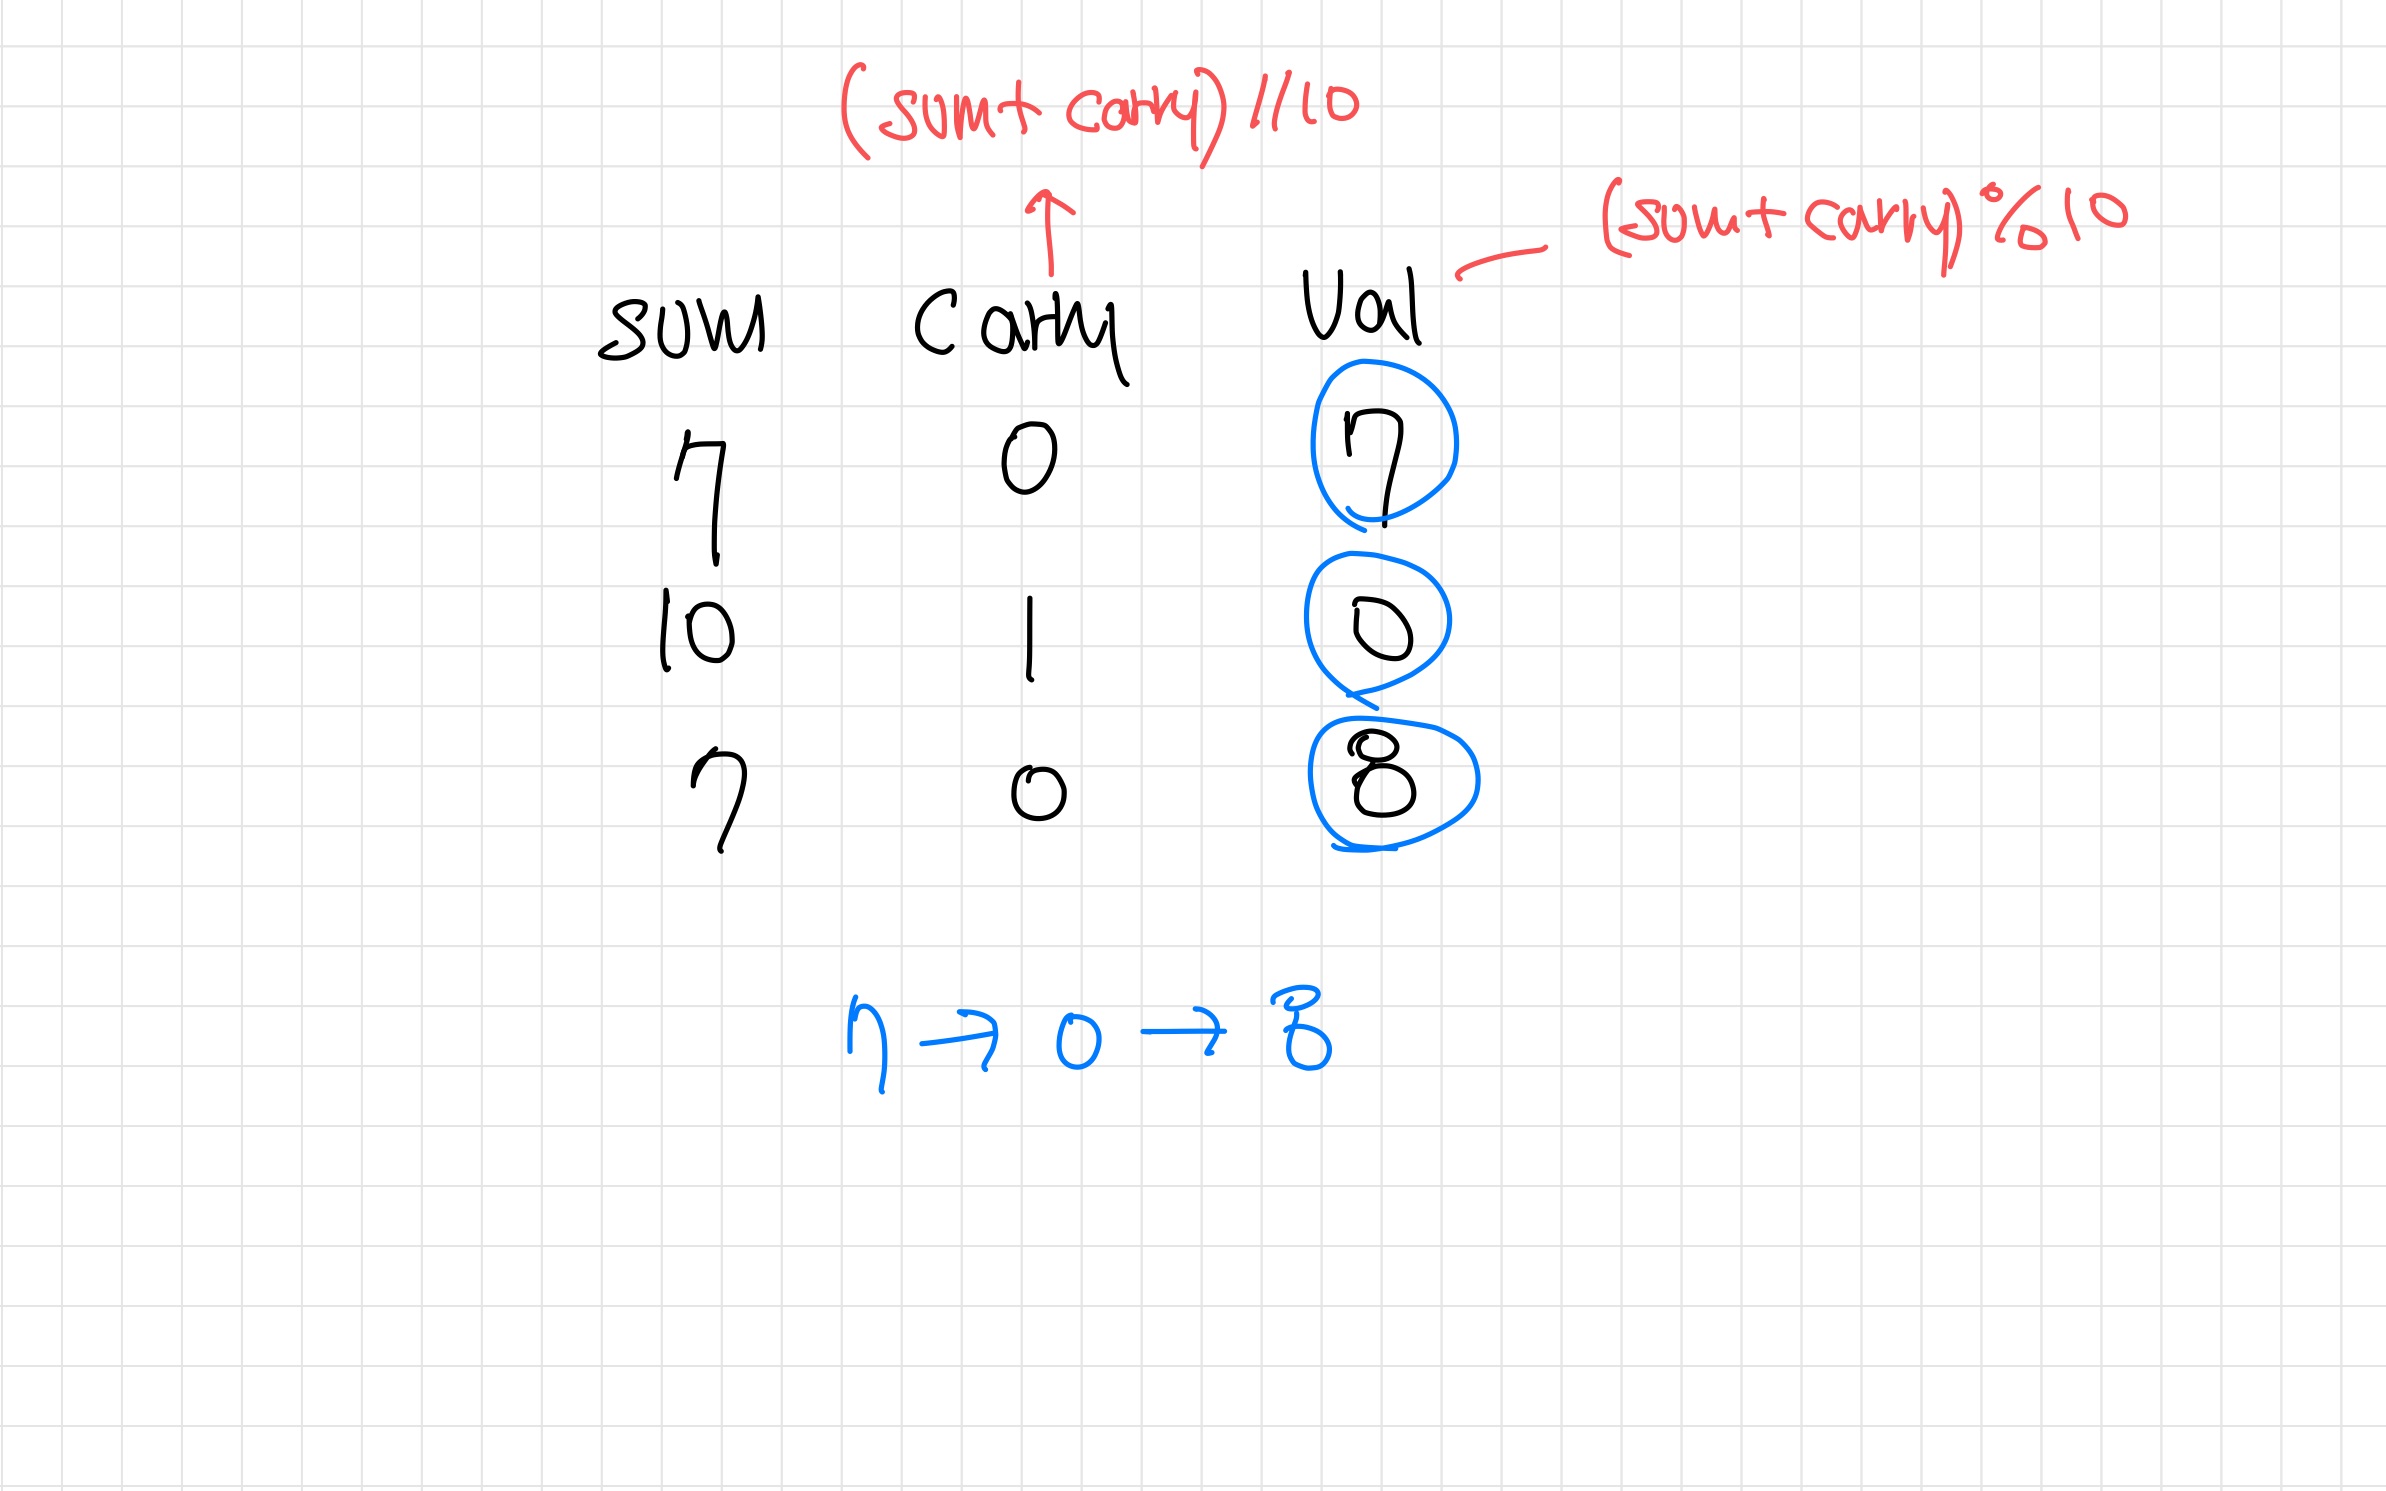 (sum + carry) // 10
(sum + carry) % 10
sum carry val
7 0 7
10 1 0
7 0 8
7 → 0 → 8